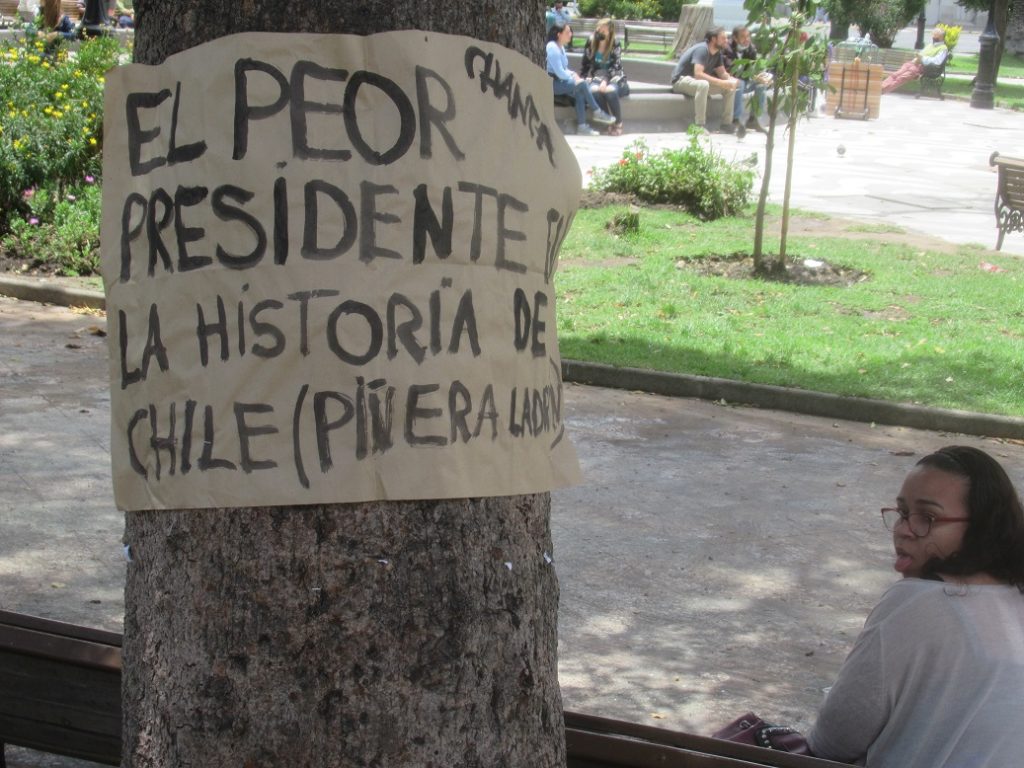 EL PEOR CHANTA
PRESIDENTE
LA HISTORIA DE
CHILE (PIÑERA LADRÓN)